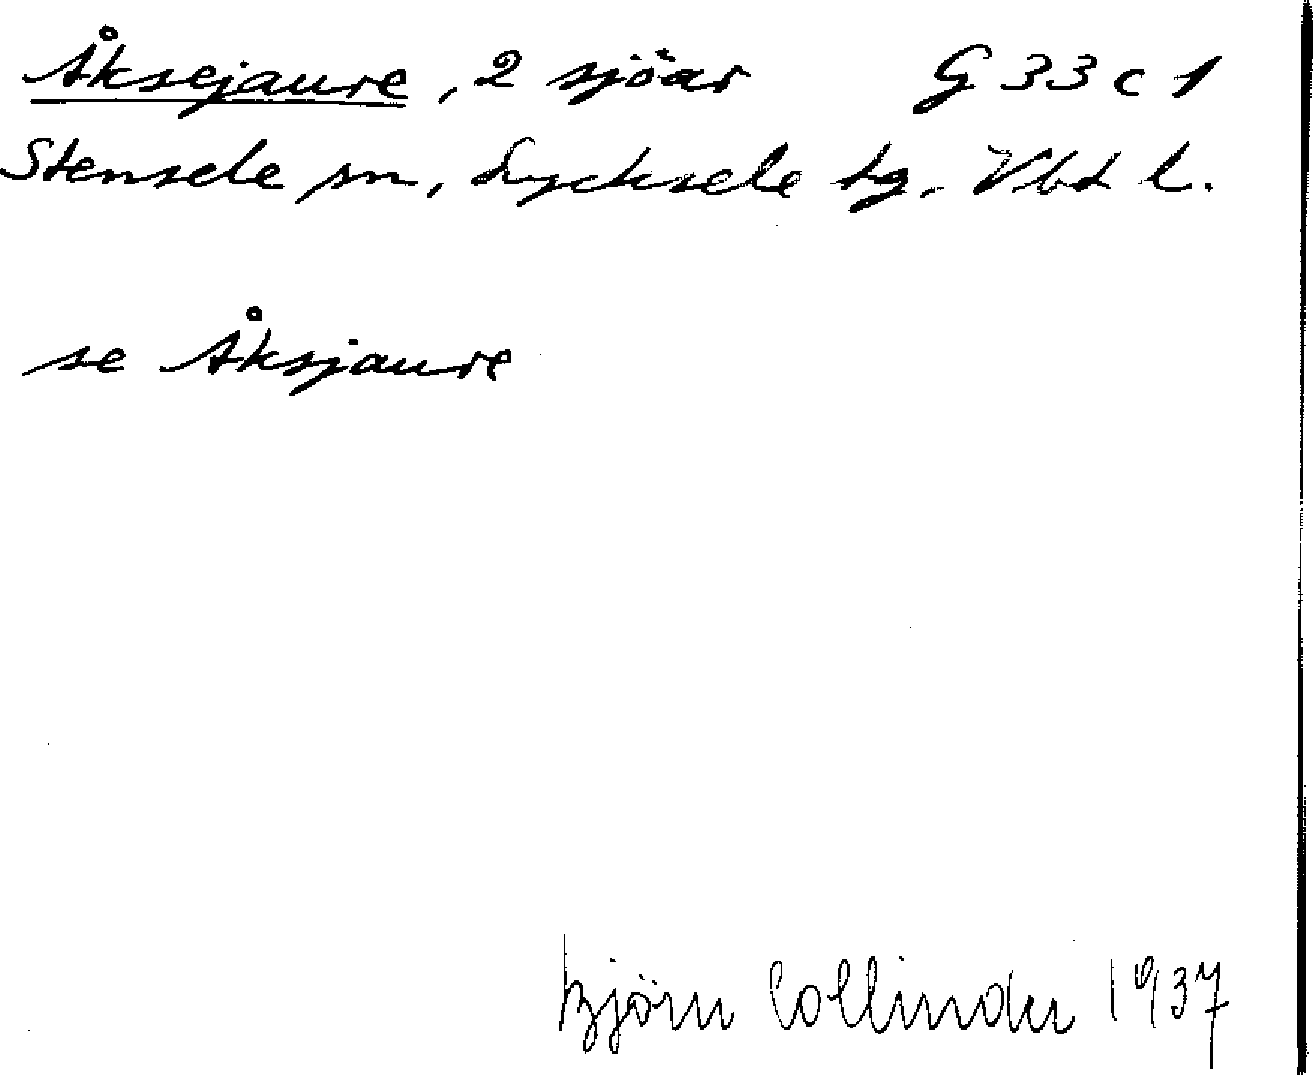 Åksejaure, 2 sjöar G 33 c 1
Stensele sn, Lycksele tg. Vbt l.
se Åksjaure
Björn Collinder 1937